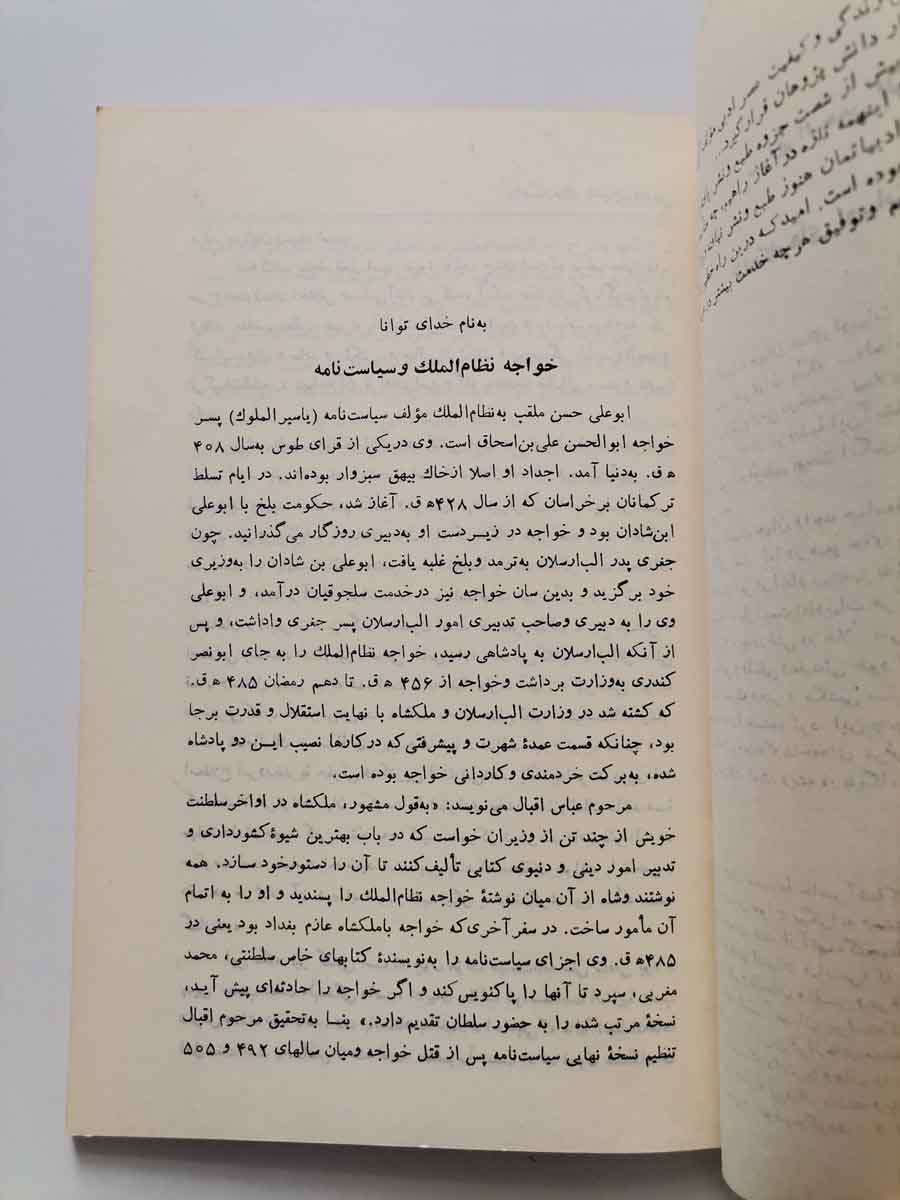 زندگی و کیفیت عصر ادبی
دانش پژوهان قرار گیرد...
بیش از شصت جزوه طبع و نشر
اینهمه تازه در آغاز راهیم، چه
ادبیاتمان هنوز طبع و نشر
بوده است. امید که درین راه
و توفیق هرچه خدمت بیشتر
به نام خدای توانا
خواجه نظام‌الملك و سیاست نامه
ابوعلی حسن ملقب به نظام‌الملك مؤلف سیاست‌نامه (یاسیرالملوك) پسر
خواجه ابوالحسن علی‌بن‌اسحاق است. وی دریکی از قرای طوس به‌سال ۴۰۸
ه‍ ق. به‌دنیا آمد. اجداد او اصلا ازخاك بیهق سبزوار بوده‌اند. در ایام تسلط
ترکمانان برخراسان که از سال ۴۲۸ه‍ ق. آغاز شد، حکومت بلخ با ابوعلی
ابن‌شادان بود و خواجه در زیردست او به‌دبیری روزگار می‌گذرانید. چون
جغری پدر الب‌ارسلان به‌ترمد وبلخ غلبه یافت، ابوعلی بن شادان را به‌وزیری
خود برگزید و بدین سان خواجه نیز درخدمت سلجوقیان درآمد، و ابوعلی
وی را به دبیری وصاحب تدبیری امور الب‌ارسلان پسر جغری واداشت، و پس
از آنکه الب‌ارسلان به پادشاهی رسید، خواجه نظام‌الملك را به جای ابونصر
کندری به‌وزارت برداشت وخواجه از ۴۵۶ ه‍ ق. تا دهم رمضان ۴۸۵ ه‍ ق.
که کشته شد در وزارت الب‌ارسلان و ملکشاه با نهایت استقلال و قدرت برجا
بود، چنانکه قسمت عمدهٔ شهرت و پیشرفتی‌که درکارها نصیب این دو پادشاه
شده، به‌برکت خردمندی وکاردانی خواجه بوده است.
مرحوم عباس اقبال می‌نویسد: «به‌قول مشهور، ملکشاه در اواخرسلطنت
خویش از چند تن از وزیران خواست که در باب بهترین شیوهٔ کشورداری و
تدبیر امور دینی و دنیوی کتابی تألیف‌کنند تا آن را دستورخود سازد. همه
نوشتند وشاه از آن میان نوشتهٔ خواجه نظام‌الملك را پسندید و او را به اتمام
آن مأمور ساخت. در سفر آخری‌که خواجه باملکشاه عازم بغداد بود یعنی در
۴۸۵ه‍ ق. وی اجزای سیاست‌نامه را به‌نویسندهٔ کتابهای خاس سلطنتی، محمد
مغربی، سپرد تا آنها را پاکنویس‌کند و اگر خواجه را حادثه‌ای پیش آید،
نسخهٔ مرتب شده را به حضور سلطان تقدیم دارد.» بنا به‌تحقیق مرحوم اقبال
تنظیم نسخهٔ نهایی سیاست‌نامه پس از قتل خواجه ومیان سالهای ۴۹۲ و ۵۰۵